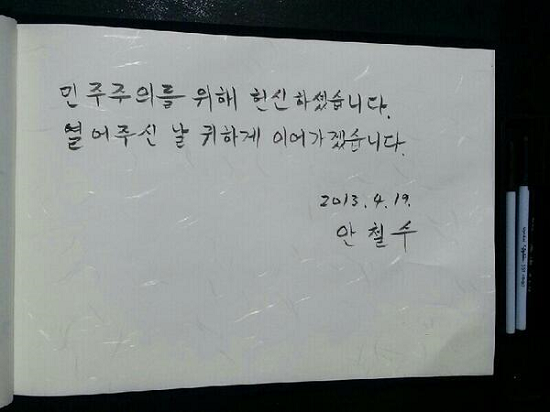 민주주의를 위해 헌신하셨습니다.
열어주신 날 귀하게 이어가겠습니다.
2013.4.19.
안철수